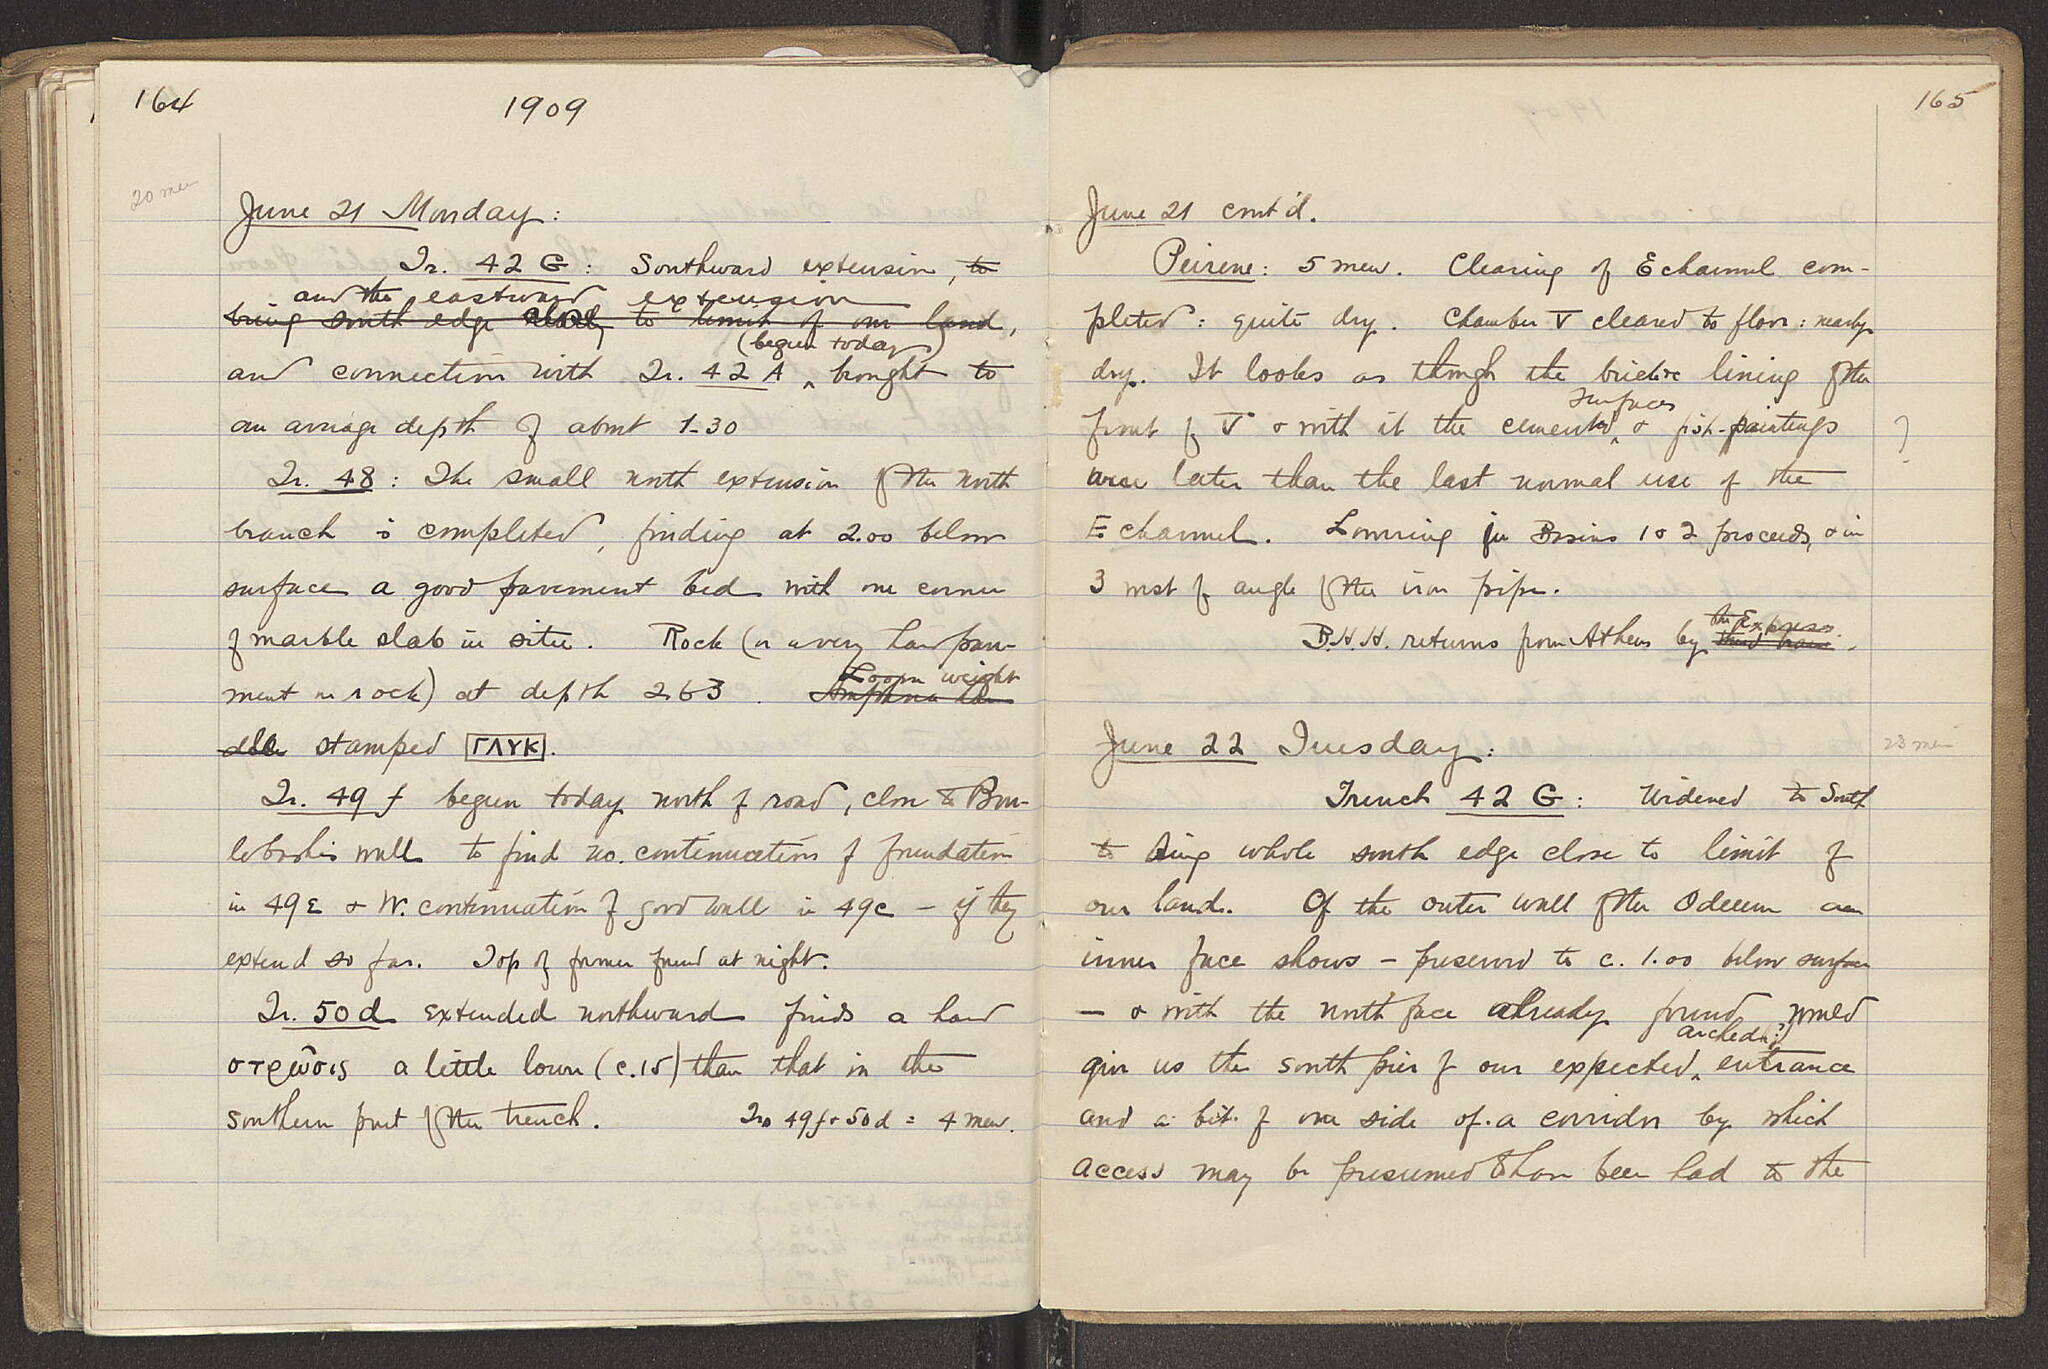 164
1909
20 men
June 21 Monday:
Tr. 42 G: Southward extension, to
and the eastward extension
bring south edge closely to limit of our land,
(begun today)
and connection with Tr. 42 A brought to
an average depth of about 1.30
Tr. 48: The small north extension of the north
branch is completed, finding at 2.00 below
surface a good pavement bed with one corner
of marble slab in situ. Rock (or a very hard pave-
Loom weight
ment or rock) at depth 2.63. Amphora han-
dle stamped ΓΛΥΚ.
Tr. 49 f begun today north of road, close to Bou-
lobashis wall to find no. continuation of foundation
in 49E & W. continuation of good wall in 49C – if they
extend so far. Top of former found at night.
Tr. 50 d extended northward finds a hard
στρῶσις a little lower (c.15) than that in the
southern part of the trench. Trs 49f + 50d = 4 men.
165
June 21 cont'd.
Peirene: 5 men. Clearing of E channel com-
pleted: quite dry. Chamber V cleared to floor: nearly
dry. It looks as though the lining of the
surfaces
front of V & with it the cemented & fish-paintings
?
were later than the last normal use of the
E channel. Lowering in Basins 1 & 2 proceeds, & in
3 west of angle of the iron pipe.
the Express
B.H.H. returns from Athens by third train.
June 22 Tuesday:
23 men
Trench 42 G: Widened to South
to bring whole south edge close to limit of
our land. Of the outer wall of the Odeum an
inner face shows – preserved to c. 1.00 below surface
– & with the north face already found would
arched(?)
give us the south pier of our expected entrance
and a bit of one side of a corridor by which
access may be presumed to have been had to the